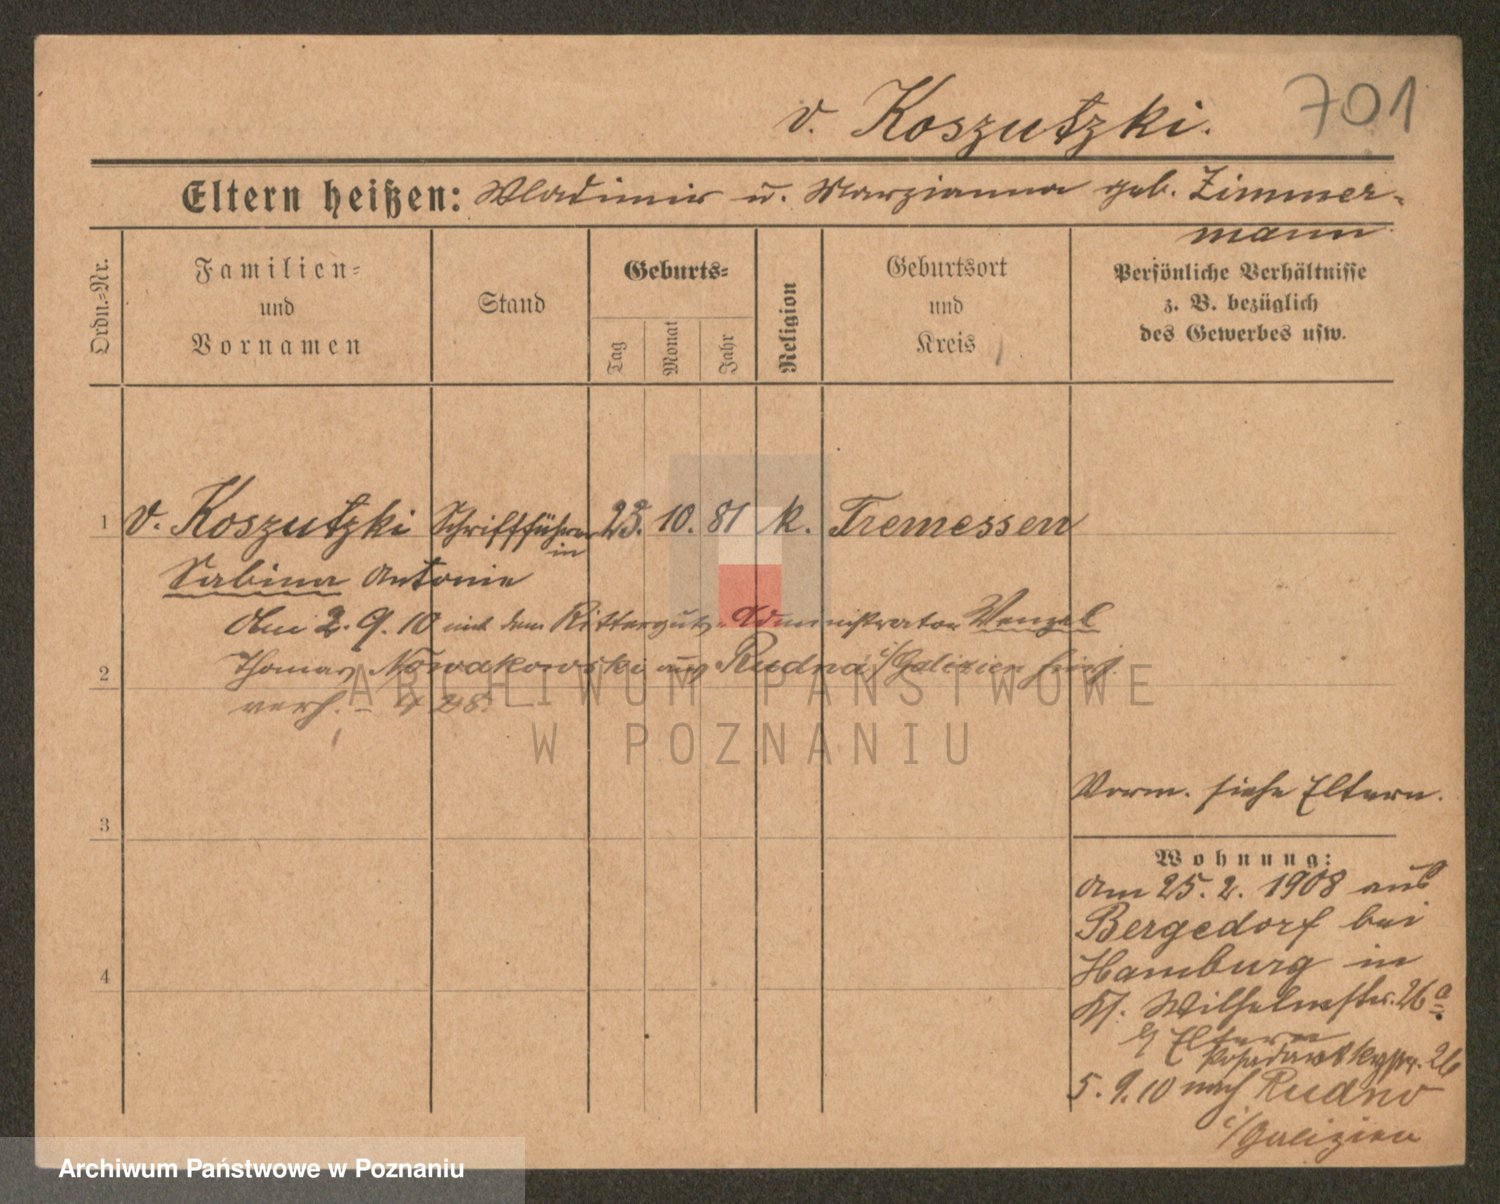 701
v. Koszutzki.
Eltern heißen: Wladimir u. Marzianna geb. Zimmer-
mann
Ordn.-Nr.
Familien-
und
Vornamen
Stand
Geburts-
Tag
Monat
Jahr
Religion
Geburtsort
und
Kreis
Persönliche Verhältnisse
z. B. bezüglich
des Gewerbes usw.
1 v. Koszutzki Schriftführer 23. 10. 81 k. Tremessen
in
Sabina Antonie
Am 2. 9. 10 mit dem Ritterguts-Administrator Wenzel
2 Thomas Nowakowski aus Rudna i/Galizien hier
verh. -
ARCHIWUM PAŃSTWOWE
W POZNANIU
Vorm. siehe Eltern.
3
Wohnung:
Am 25. 2. 1908 aus
Bergedorf bei
4 Hamburg in
Wilhelmstr. 26a
b/ Eltern
Posadowskystr. 26
5. 9. 10 nach Rudno
i/Galizien
Archiwum Państwowe w Poznaniu